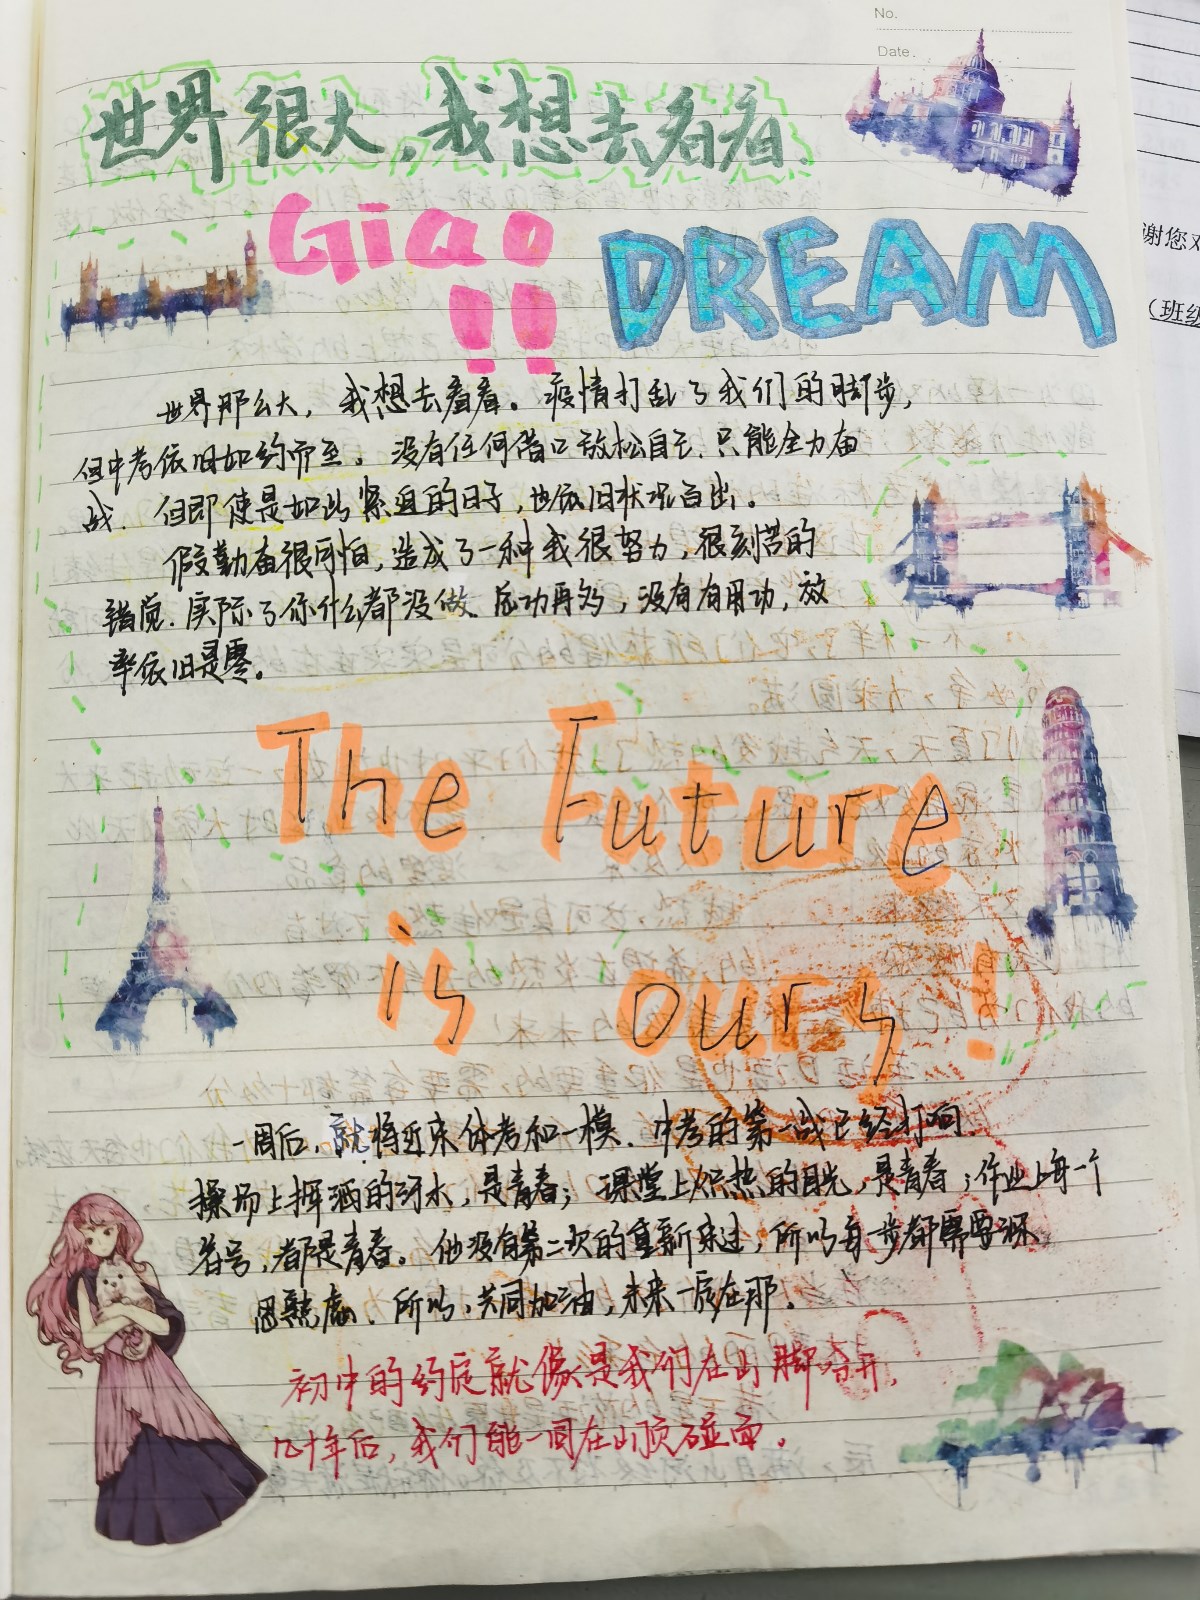 No.
Date.
世界很大,我想去看看
Giao
!!
DREAM
世界那么大，我想去看看。疫情打乱了我们的脚步，
但中考依旧如约而至。没有任何借口放松自己.只能全力奋
战. 但即使是如此紧迫的日子，也依旧状况百出。
假勤奋很可怕,造成了一种我很努力,很刻苦的
错觉.实际了你什么都没做.无功再多，没有有用功,效
率依旧是零。
The Future
is ours!
一周后,就将迎来体考和一模.中考的第一战已经打响.
操场上挥洒的汗水，是青春；课堂上炽热的目光,是青春;作业上每一个
符号,都是青春。他没有第二次的重新来过,所以每一步都需要深
思熟虑.所以,共同加油,未来一定在那.
初中的约定就像是我们在山脚分开,
几十年后,我们能一同在山顶碰面。
谢您对
（班级